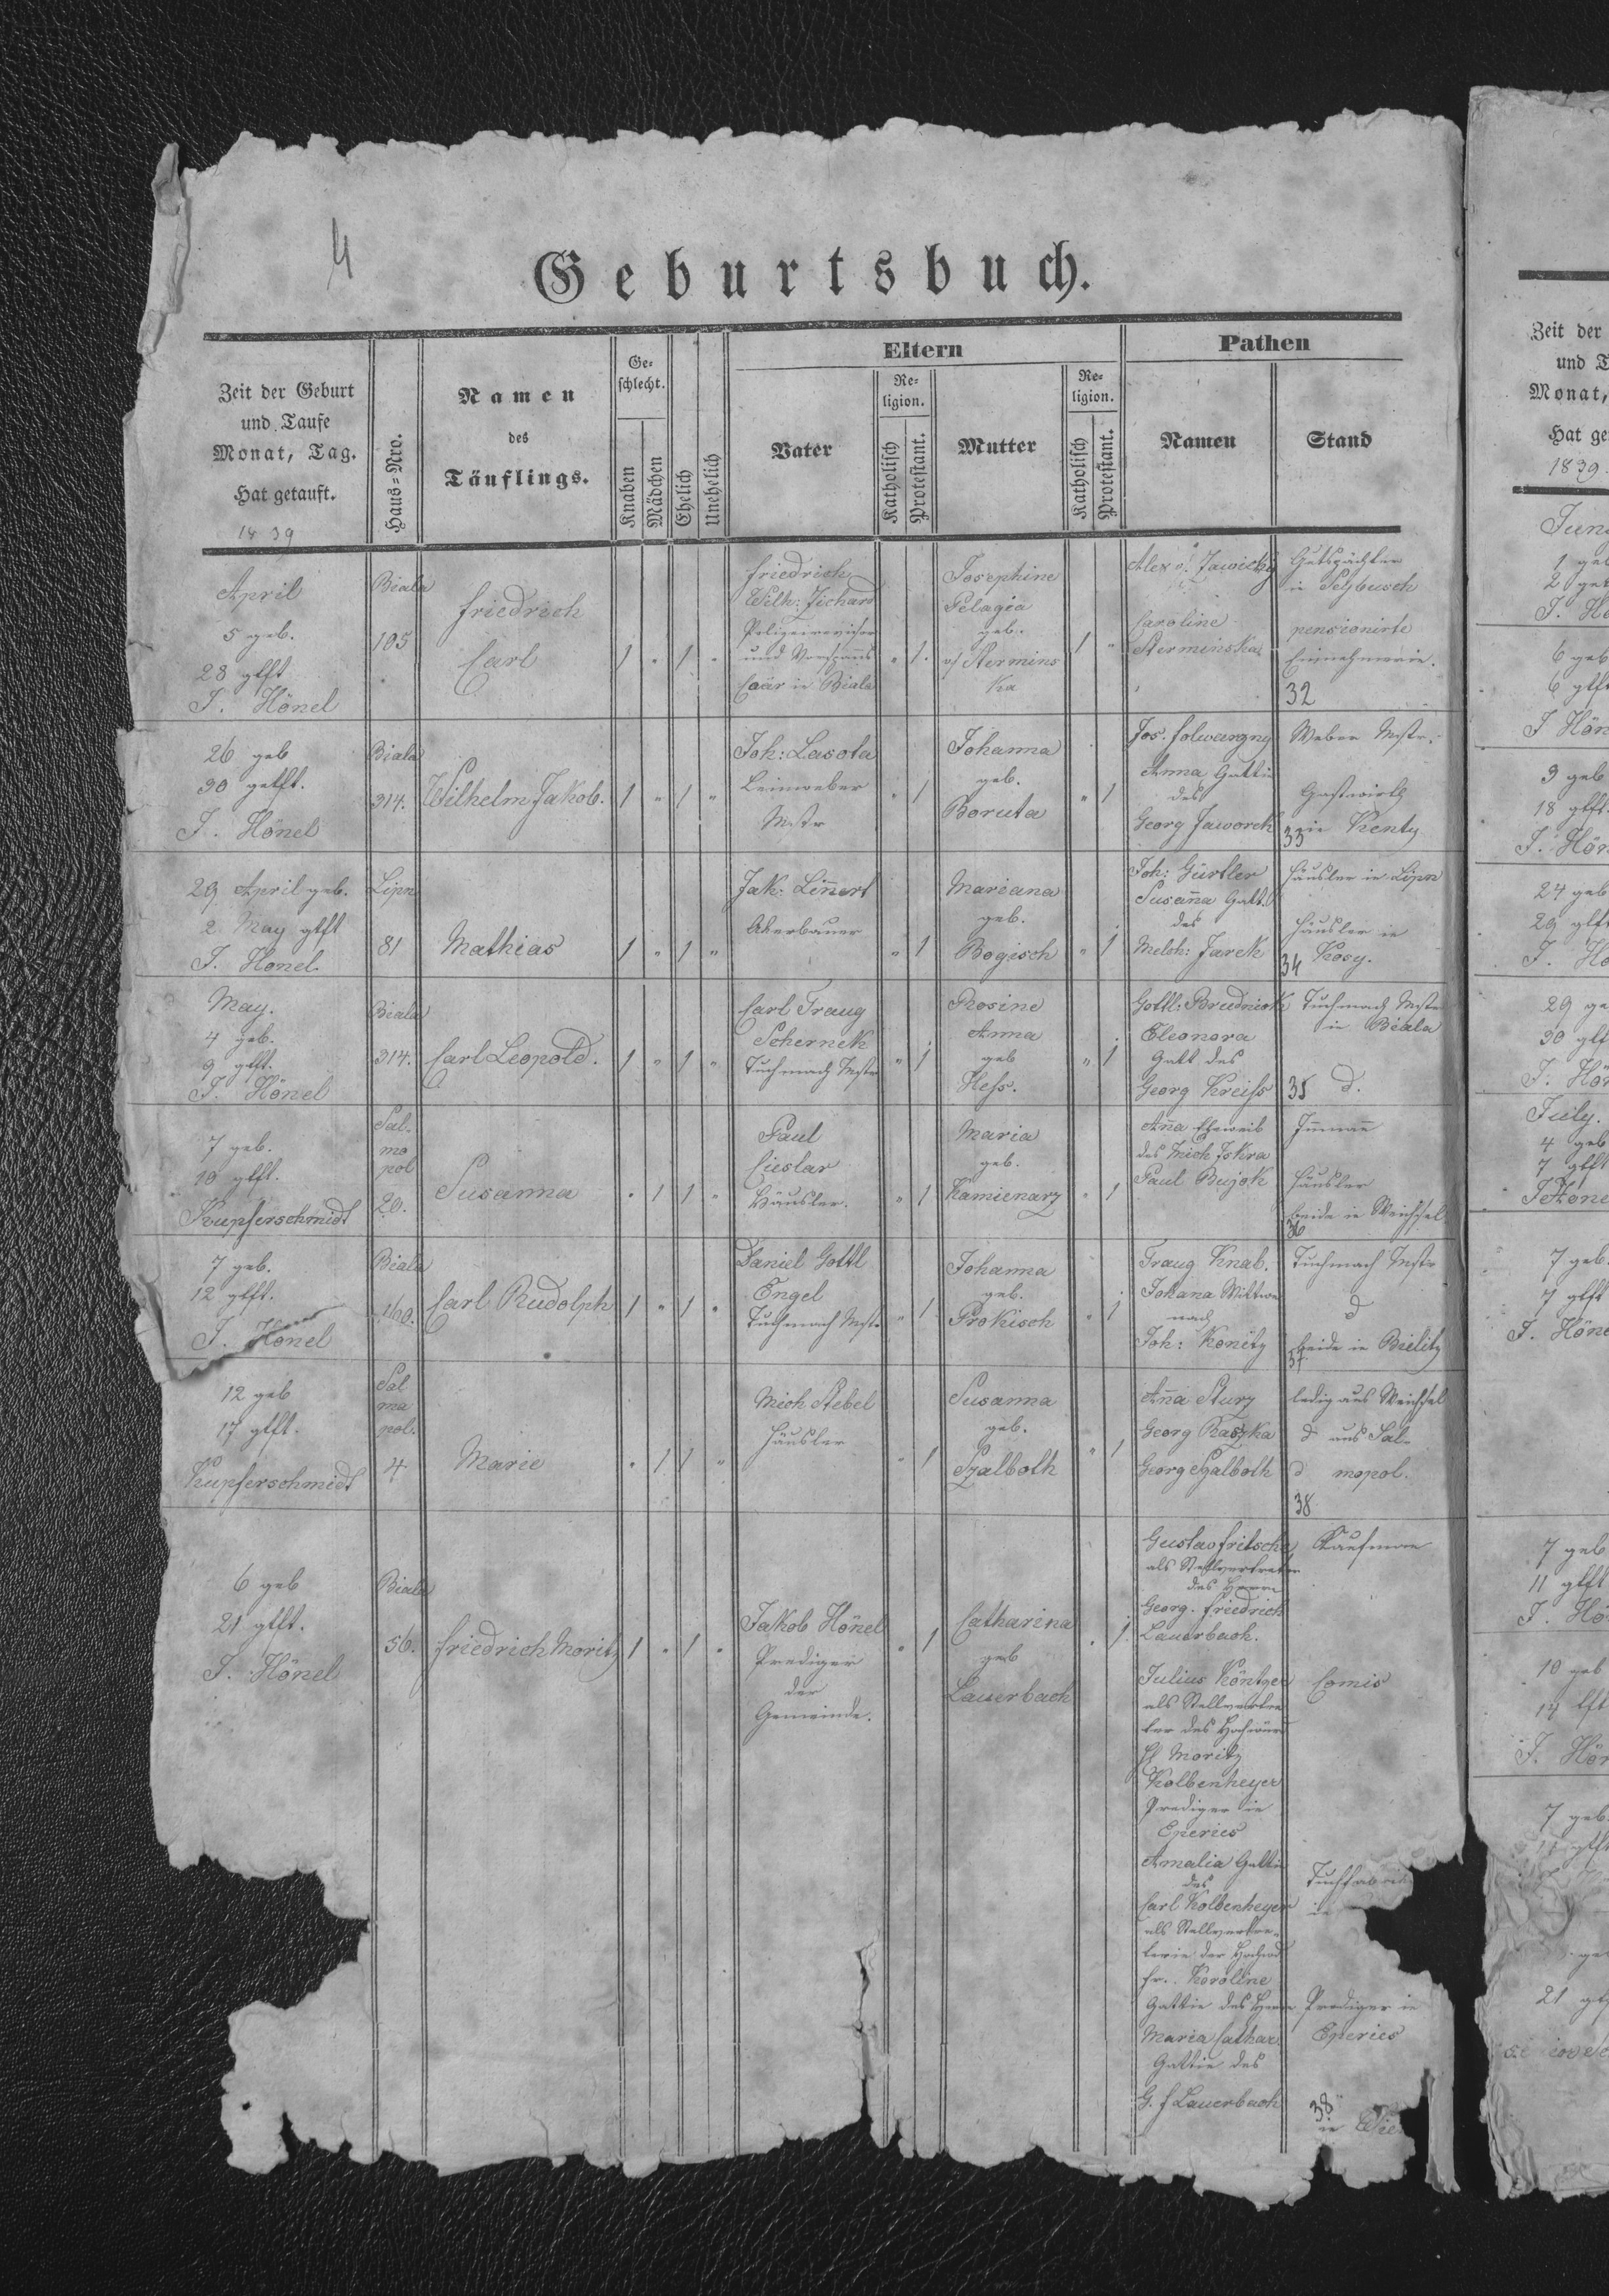 4
Geburtsbuch.
Zeit der Geburt
und Taufe
Monat, Tag.
Hat getauft.
1839
Haus-Nro.
Namen
des
Täuflings.
Ge-
schlecht.
Knaben
Mädchen
Ehelich
Unehelich
Eltern
Vater
Re-
ligion.
Katholisch
Protestant.
Mutter
Re-
ligion.
Katholisch
Protestant.
Pathen
Namen
Stand
April
5 geb.
28 gtft
J. Hönel
Biala
105
Friedrich
Carl
1 " 1 "
Friedrich
Wilh: Zichard
Polizeirevisor
und Vorspanns
in Biala
" 1.
Josephine
Pelagia
geb.
v/ Stermins
ka
1 "
Alex v. Zawicky
Caroline
Sterminska
Gutspächter
in Seybusch
pensionirte
Einnehmerin.
32
26 geb
30 getft.
J. Hönel
Biala
314.
Wilhelm Jakob.
1 " 1 "
Joh: Lasota
Leinweber
Mstr
" 1
Johanna
geb.
Boruta
" 1
Jos. Folwargny
Anna Gattin
des
Georg Jaworek
Weber Mstr.
Gastwirth
in Kenty
33
29 April geb.
2 May gtft
J. Hönel
Lipn
81
Mathias
1 " 1 "
Jak: Linnert
Akerbauer
" 1
Mariana
geb.
Bogisch
" 1
Joh: Gürtler
Susanna Gatt.
des
Melch: Jarek
Häusler in Lipn
Häusler in
Kosy.
34
May.
4 geb.
9 gtft.
J. Hönel
Biala
314.
Carl Leopold.
1 " 1 "
Carl Traug
Schernek
Tuchmach Mstr
" 1
Rosine
Anna
geb
Hess.
" 1
Gottl: Brudniok
Eleonora
Gatt des
Georg Kreiss
Tuchmach Mstr
in Biala
35 d.
7 geb.
10 gtft.
Kupferschmidt
Sal-
mo
pol
20.
Susanna
" 1 1 "
Paul
Cieslar
Häusler.
" 1
Maria
geb.
Kamienarz
" 1
Anna Eheweib
des Mich Iskra
Paul Bujok
Inmann
Häusler
beide in Weichsel
36
7 geb.
12 gtft.
J. Hönel
Biala
Carl Rudolph
1 " 1 "
Daniel Gottl
Engel
Tuchmach Mstr
" 1
Johanna
geb.
Prokisch
" 1
Traug Knab.
Johana Wittwe
nach
Joh: Konitz
Tuchmach Mstr
d
beide in Bielitz
37
12 geb
17 gtft.
Kupferschmidt
Sal
ma
pol.
4
Marie
" 1 1 "
Mich Stebel
Häusler
" 1
Susanna
geb.
Szalboth
" 1
Anna Sturz
Georg Raszka
Georg Szalboth
ledig aus Weichsel
d aus Sal-
d mopol.
38
6 geb
21 gtft.
J. Hönel
Biala
56.
Friedrich Moritz
1 " 1 "
Jakob Hönel
Prediger
der
Gemeinde.
" 1
Catharina
geb
Lauerbach
" 1
Gustav Fritsche
als Stellvertreter
des Herrn
Georg. Friedrich
Lauerbach.
Julius Köntzer
als Stellvertre
ter des Hochwürd
H Moritz
Kolbenheyer
Prediger in
Eperies
Amalia Gattin
des
Carl Kolbenheyer
als Stellvertre-
terin der
Fr. Karoline
Gattin des Herrn
Maria Cathar.
Gattin des
G. F Lauerbach
Kaufmann
Comis
Tuchfabrik
in
Prediger in
Eperies
38
in
Zeit der
und T
Monat,
Hat ge
1839.
Juni
1 geb
2 get
J. Hö
6 geb
6 gtft
J Hön
3 geb
18 gtft.
J. Hön
24 geb
29 gtft
J. Hö
29 ge
30 gtf
J. Hön
July.
4 geb
7 gtft
J Höne
7 geb.
7 gtft
J. Höne
7 geb
11 gtft
J. Hö
10 geb
14 tft
J. Hön
7 geb.
21 gtf